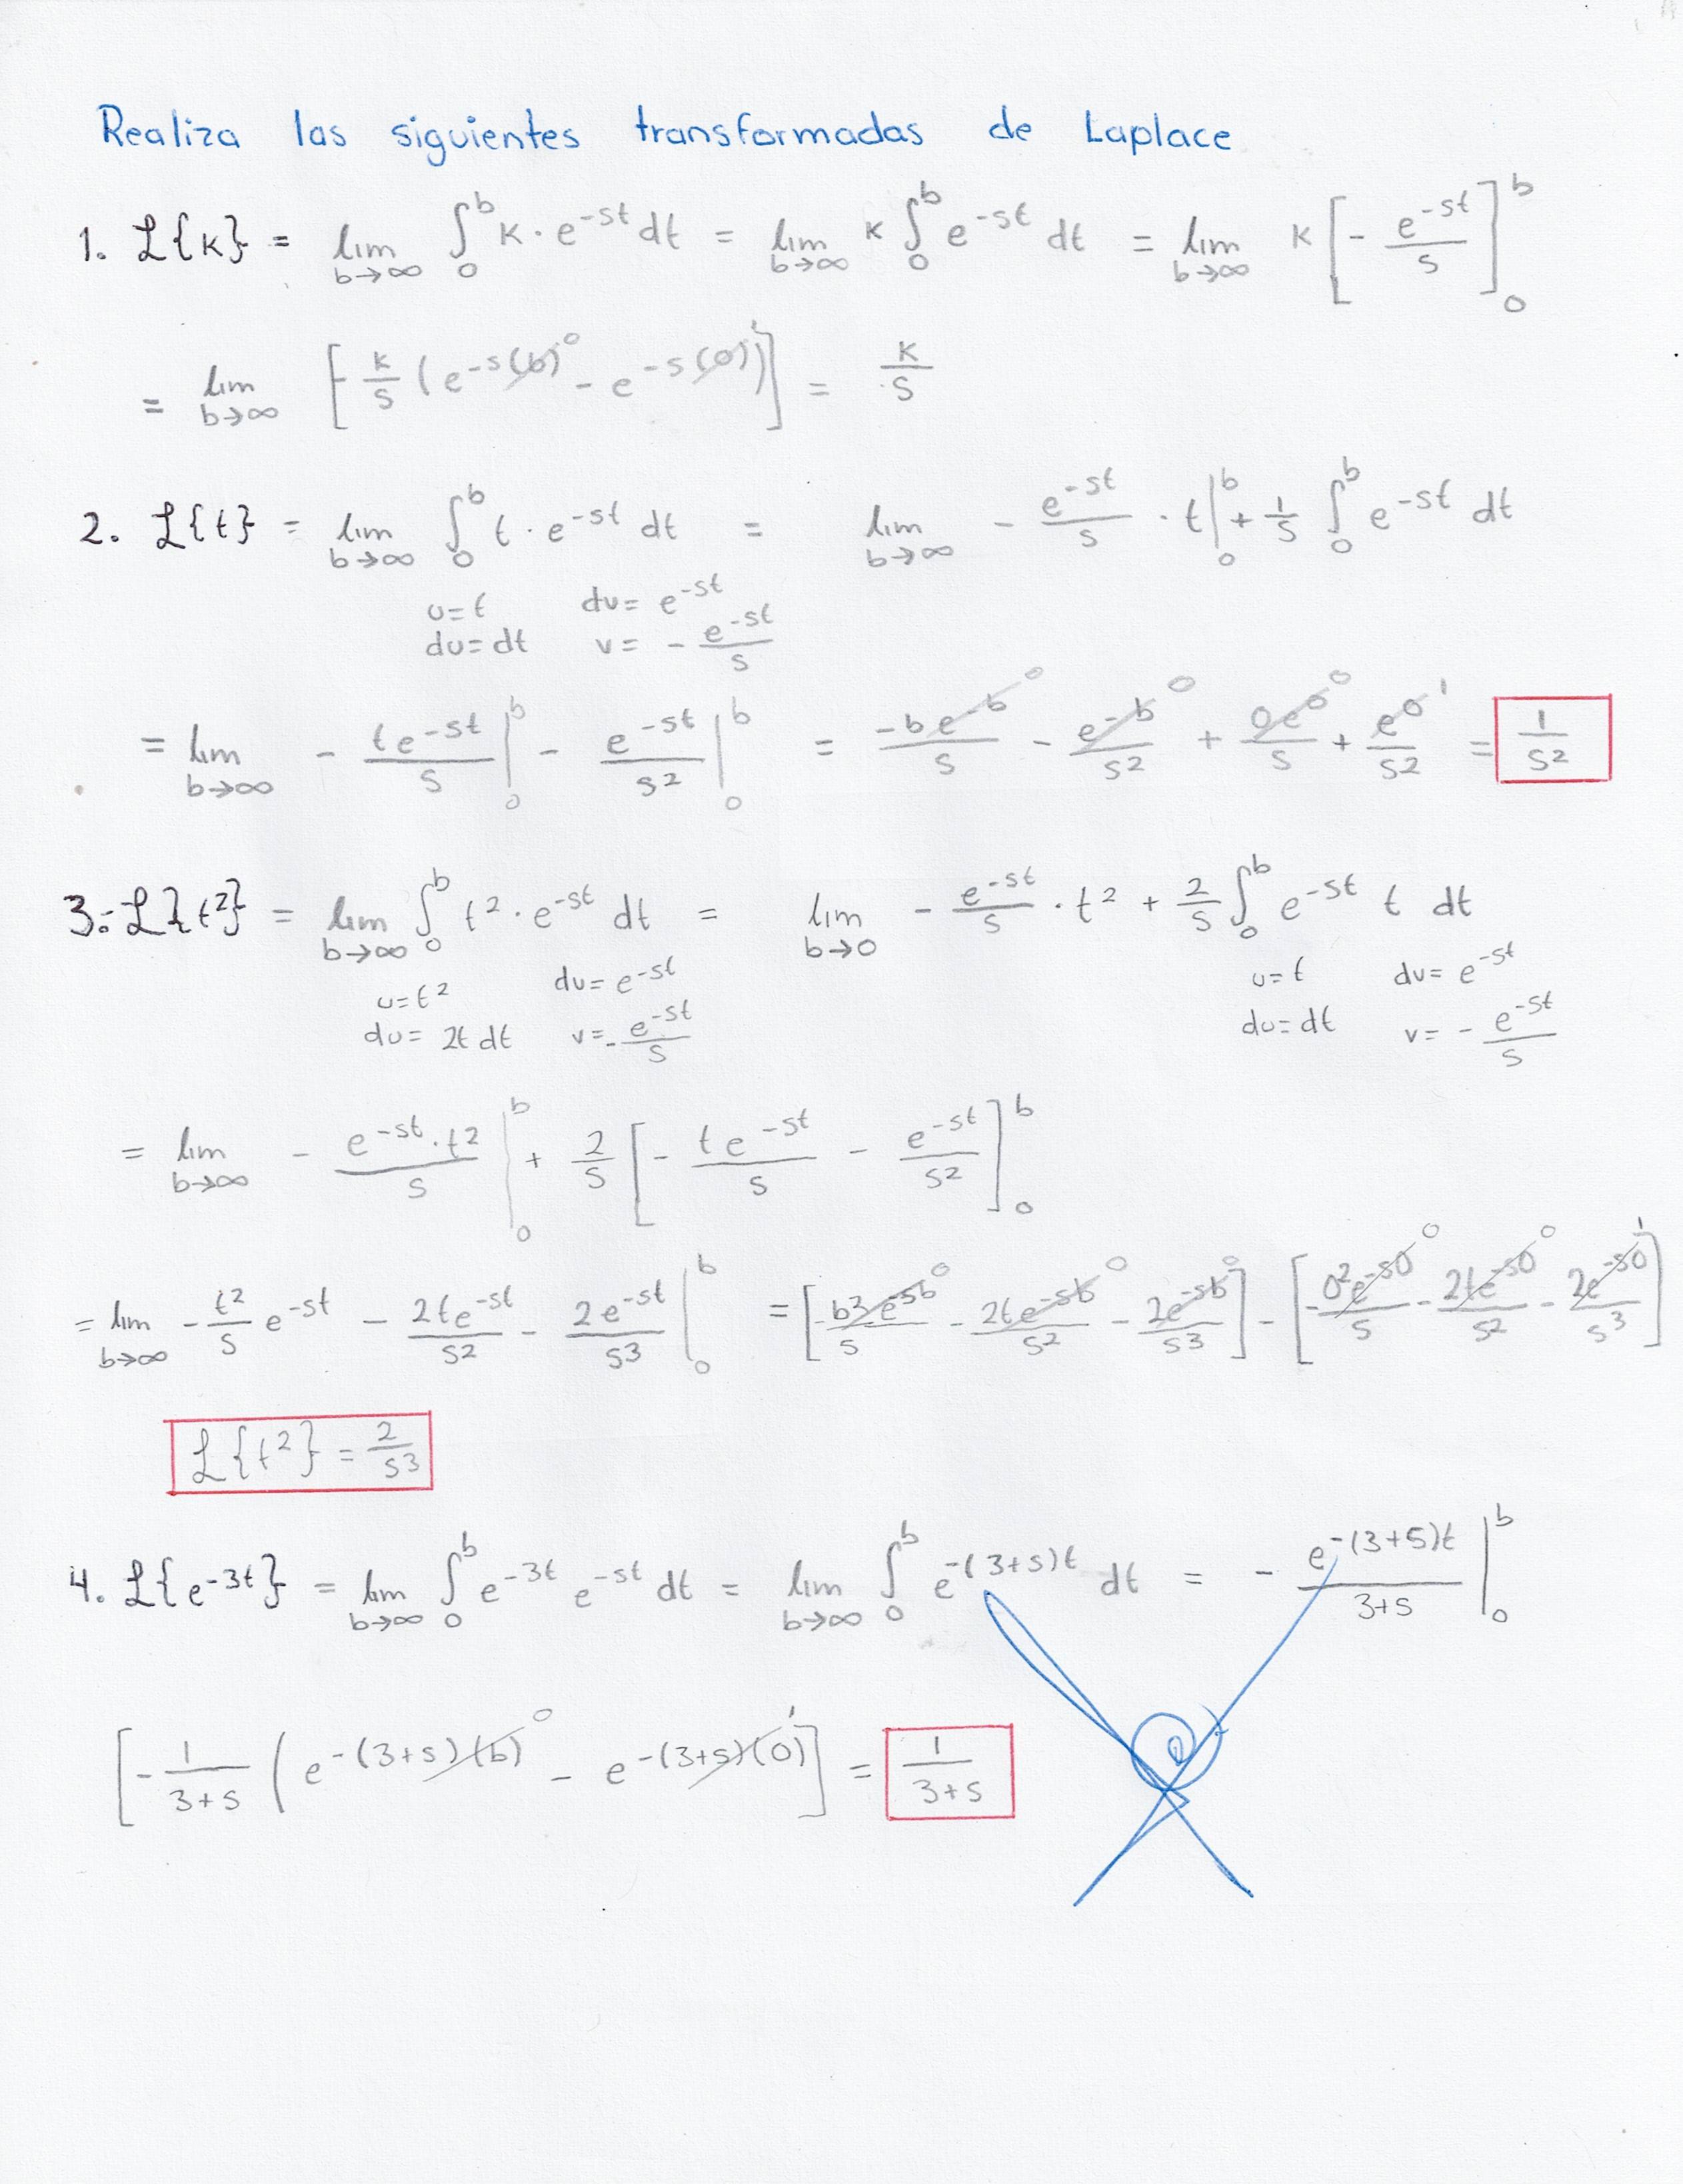 Realiza las siguientes transformadas de Laplace
1. ℒ{k} = lim b→∞ ∫₀ᵇ k · e^-st dt = lim b→∞ k ∫₀ᵇ e^-st dt = lim b→∞ k [- e^-st / s]₀ᵇ
= lim b→∞ [- k/s (e^-s(b) ⁰ - e^-s(0) ¹)] = k/s
2. ℒ{t} = lim b→∞ ∫₀ᵇ t · e^-st dt = lim b→∞ - e^-st / s · t |₀ᵇ + 1/s ∫₀ᵇ e^-st dt
u=t dv= e^-st
du=dt v= - e^-st / s
= lim b→∞ - te^-st / s |₀ᵇ - e^-st / s² |₀ᵇ = -be^-b / s ⁰ - e^-b / s² ⁰ + 0e^0 / s ⁰ + e^0 / s² ¹ = 1/s²
3.- ℒ{t²} = lim b→∞ ∫₀ᵇ t² · e^-st dt = lim b→0 - e^-st / s · t² + 2/s ∫₀ᵇ e^-st t dt
u=t² dv= e^-st u=t dv= e^-st
du= 2t dt v=- e^-st / s du=dt v= - e^-st / s
= lim b→∞ - e^-st · t² / s |₀ᵇ + 2/s [- te^-st / s - e^-st / s²]₀ᵇ
= lim b→∞ - t²/s e^-st - 2te^-st / s² - 2e^-st / s³ |₀ᵇ = [- b² e^-sb / s ⁰ - 2te^-sb / s² ⁰ - 2e^-sb / s³ ⁰] - [- 0²e^-s0 / s ⁰ - 2te^-s0 / s² ⁰ - 2e^-s0 / s³ ¹]
ℒ{t²} = 2/s³
4. ℒ{e^-3t} = lim b→∞ ∫₀ᵇ e^-3t e^-st dt = lim b→∞ ∫₀ᵇ e^-(3+s)t dt = - e^-(3+s)t / 3+s |₀ᵇ
[- 1/3+s (e^-(3+s)(b) ⁰ - e^-(3+s)(0) ¹] = 1/3+s